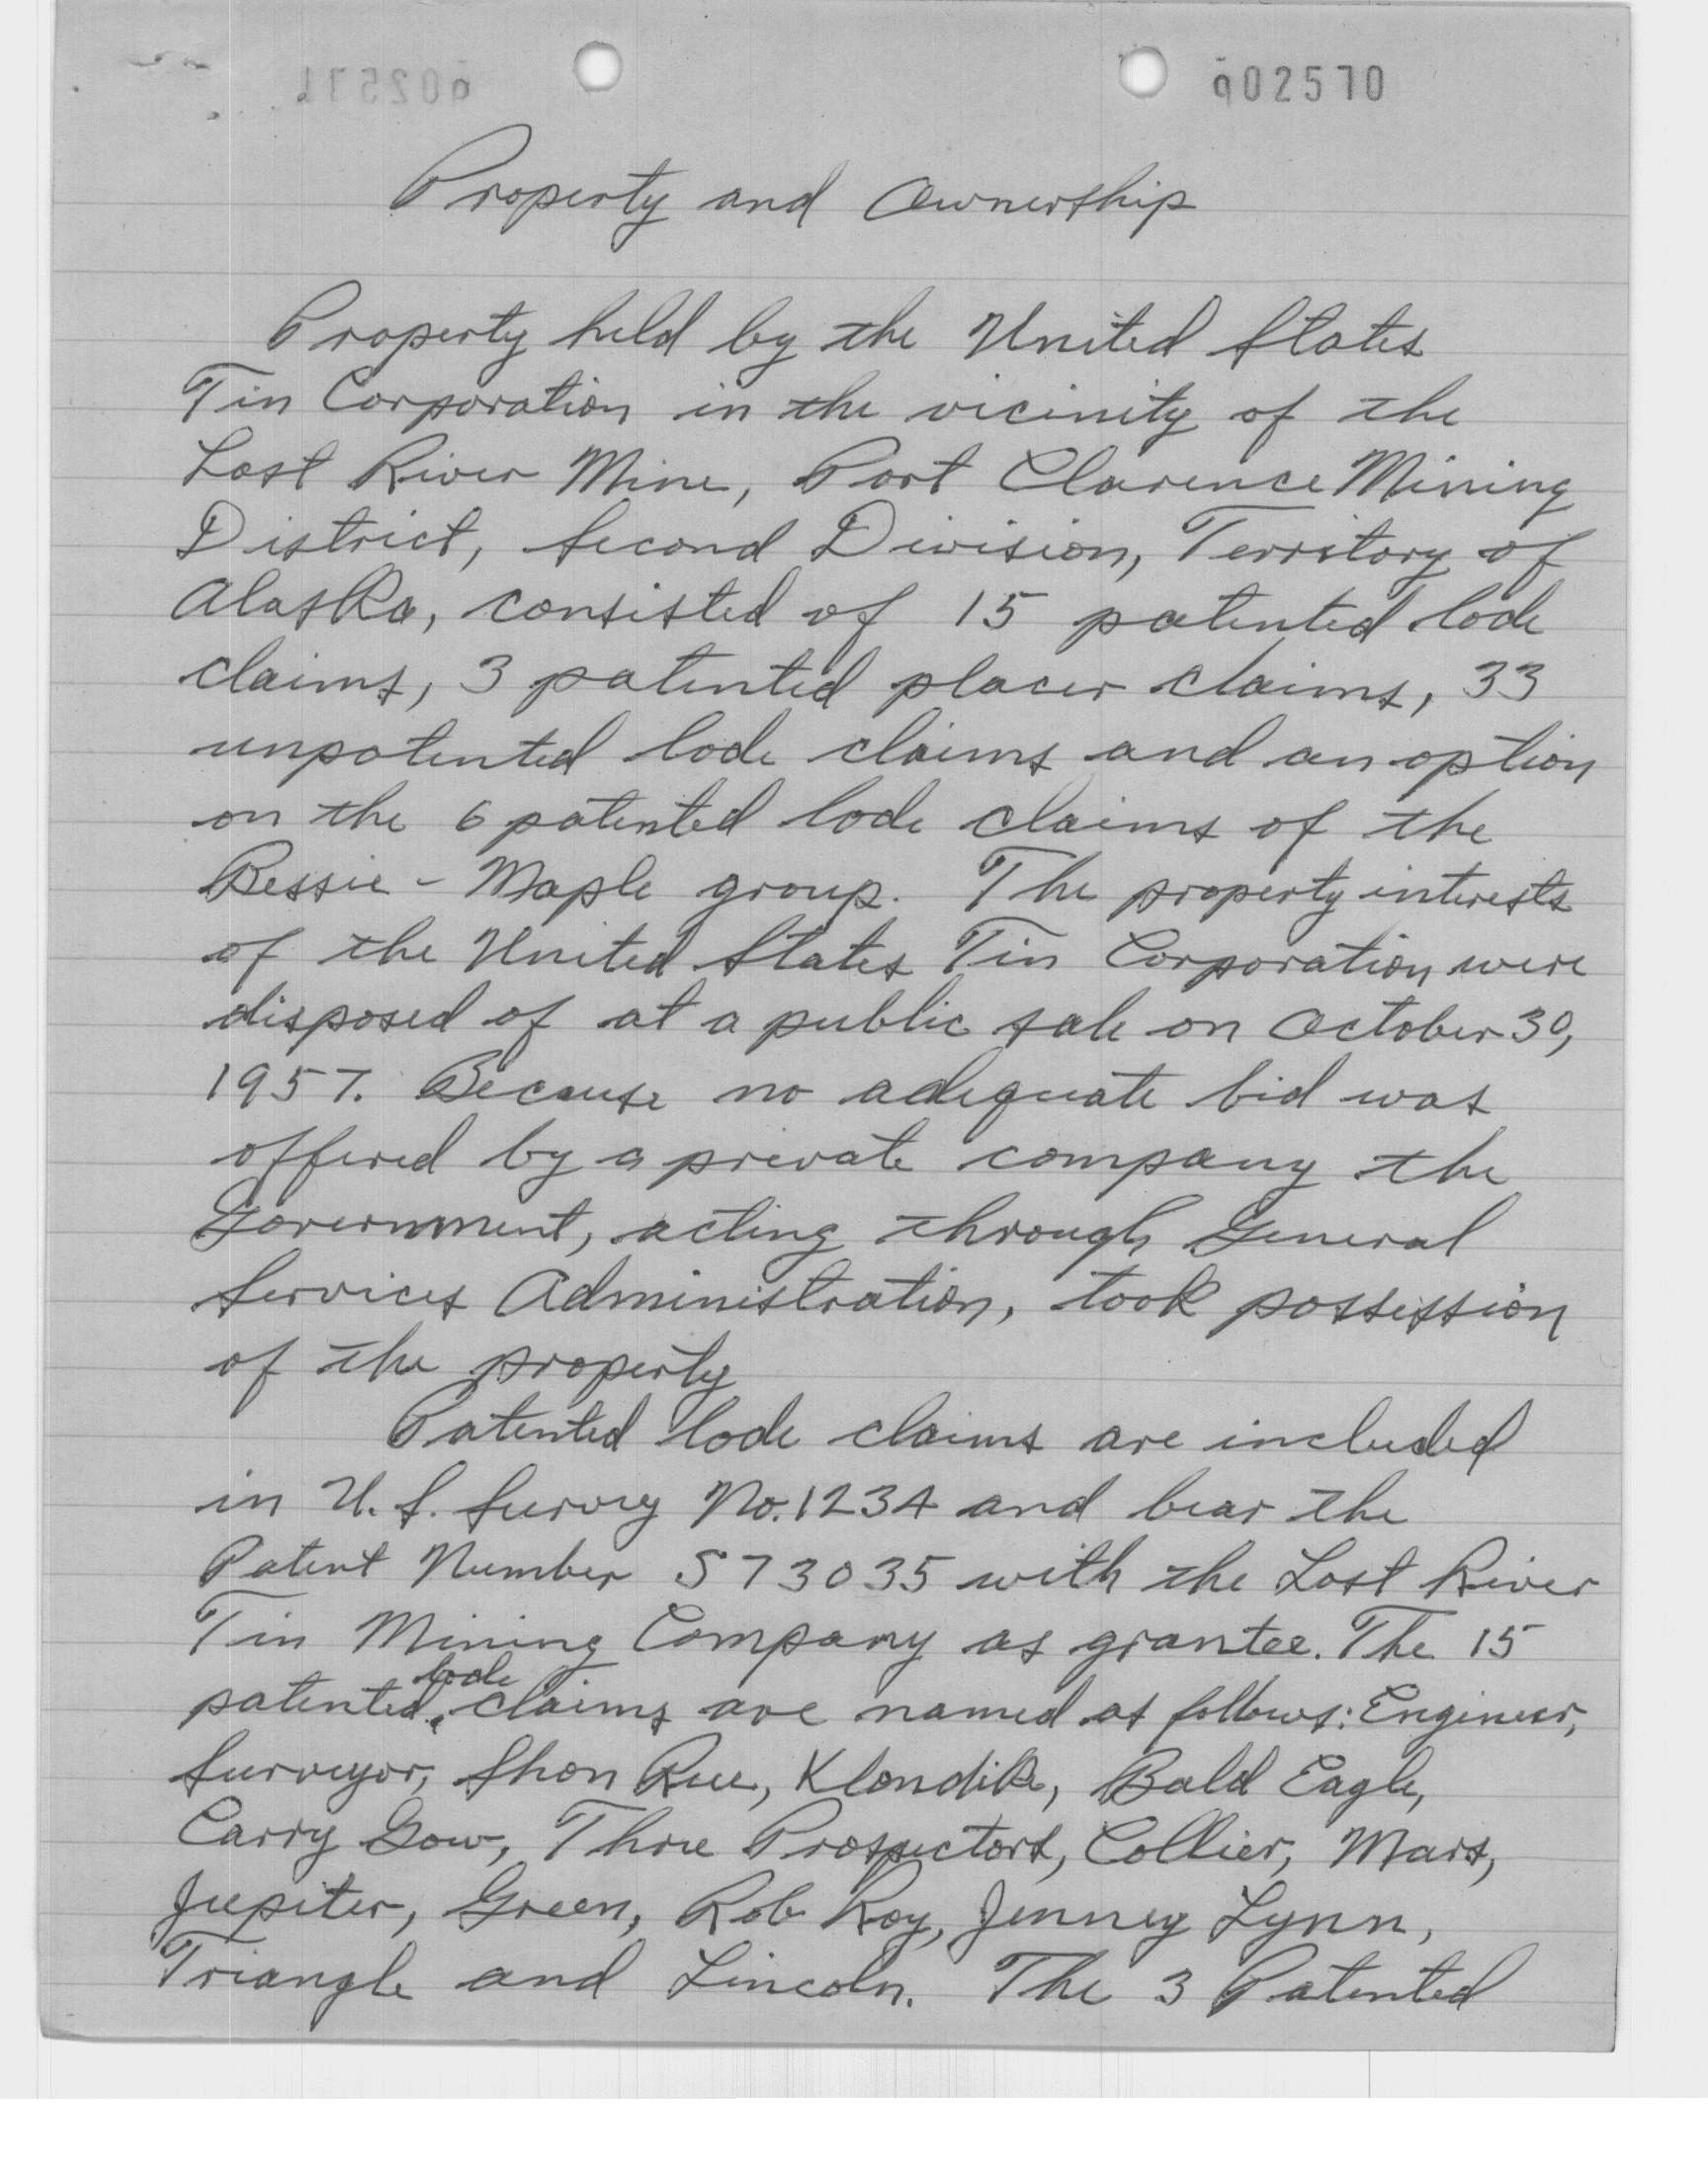 002570
Property and Ownership
Property held by the United States
Tin Corporation in the vicinity of the
Lost River Mine, Port Clarence Mining
District, Second Division, Territory of
Alaska, consisted of 15 patented lode
claims, 3 patented placer claims, 33
unpatented lode claims and an option
on the 6 patented lode claims of the
Bessie - Maple group. The property interests
of the United States Tin Corporation were
disposed of at a public sale on October 30,
1957. Because no adequate bid was
offered by a private company the
Government, acting through General
Services Administration, took possession
of the property
Patented lode claims are included
in U.S. Survey No. 1234 and bear the
Patent Number 573035 with the Lost River
Tin Mining Company as grantee. The 15
patented lode claims are named as follows: Engineer,
Surveyor, Shon Rue, Klondike, Bald Eagle,
Carry Gow, Three Prospectors, Collier, Mars,
Jupiter, Green, Rob Roy, Jenney Lynn,
Triangle and Lincoln. The 3 Patented